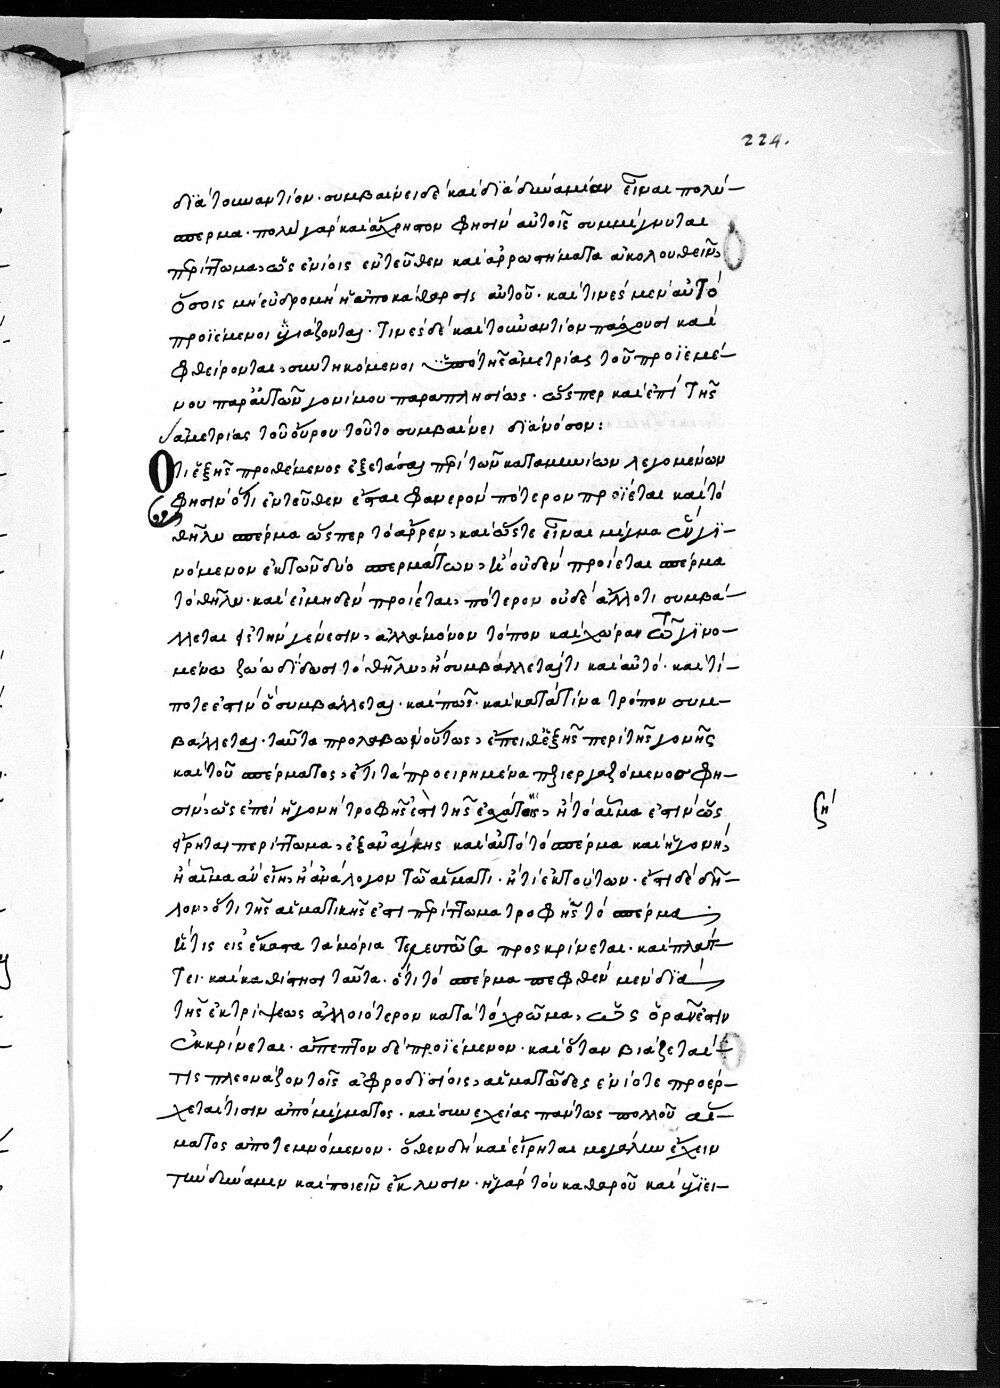 224.
διὰ τοὐναντίον· συμβαίνει δὲ καὶ διὰ δύναμιν εἶναι πολύ-
σπερμα· πολὺ γὰρ καὶ ἄχρηστον φησὶν αὐτοῖς συμμίγνυται
περίττωμα, ὡς ἐνίοις ἐντεῦθεν καὶ ἀρρωστήματα ἀκολουθεῖν,
ὅσοις μὴ εὐδρομῇ ἡ ἀποκάθαρσις αὐτοῦ· καὶ τινὲς μὲν αὐτὸ
προϊέμενοι ὑγιάζονται· τινὲς δὲ καὶ τοὐναντίον πάσχουσι καὶ
φθείρονται, συντηκόμενοι ὑπὸ τῆς ἀμετρίας τοῦ προϊεμέ-
νου παρ' αὐτῶν γονίμου παραπλησίως· ὥσπερ καὶ ἐπὶ τῆς
ἀμετρίας τοῦ οὔρου τοῦτο συμβαίνει διὰ νόσον:
Ὅτι ἑξῆς προθέμενος ἐξετάσαι περὶ τῶν καταμηνίων λεγομένων
φησὶν ὅτι ἐντεῦθεν ἔσται φανερὸν πότερον προΐεται καὶ τὸ
θῆλυ σπέρμα ὥσπερ τὸ ἄρρεν, καὶ ὥστε εἶναι μίγμα ἓν γι-
νόμενον ἐκ τῶν δύο σπερμάτων, ἢ οὐδὲν προίεται σπέρμα
τὸ θῆλυ· καὶ εἰ μηδὲν προίεται, πότερον οὐδὲ ἄλλό τι συμβά-
λλεται εἰς τὴν γένεσιν, ἀλλὰ μόνον τόπον καὶ χώραν τῶ γινο-
μένω ζώω δίδωσι τὸ θῆλυ, ἢ συμβάλλεταί τι καὶ αὐτό· καὶ τί
ποτε ἐστὶν ὃ συμβάλλεται· καὶ πῶς· καὶ κατὰ τίνα τρόπον συμ-
βάλλεται· ταῦτα προλαβὼν οὕτως, ἔπειθ' ἑξῆς περὶ τῆς γονῆς
καὶ τοῦ σπέρματος, ἔτι τὰ προειρημένα περιεργαζόμενος φη-
σὶν, ὡς ἐπεὶ ἡ γονὴ τροφῆς ἐστὶ τῆς ἐσχάτης, ἢ τὸ αἷμα ἐστὶν ὡς
εἴρηται περίττωμα, ἐξ ἀνάγκης καὶ αὐτὸ τὸ σπέρμα καὶ ἡ γονὴ,
ἢ αἷμα ἂν εἴη, ἢ ἀνάλογον τῶ αἵματι· ἤ τι ἐκ τούτων· ἔτι δὲ δῆ-
λον, ὅτι τῆς αἱματικῆς ἐστι περίττωμα τροφῆς τὸ σπέρμα
ἥτις εἰς ἕκαστα τὰ μόρια τελευτῶσα προσκρίνεται· καὶ πλάτ-
τει· καὶ καθίστησι ταῦτα· ὅτι τὸ σπέρμα πεφθὲν μὲν διὰ
τῆς ἐκτρίψεως ἀλλοιότερον κατὰ τὸ χρῶμα, ὡς ὁρᾶν ἐστιν
ἐκκρίνεται· ἄπεπτον δὲ προϊέμενον· καὶ ὅταν βιάζεται
τις πλεονάζον τοῖς ἀφροδισίοις, αἱματῶδες ἐνίοτε προέρ-
χεταί τισιν ἀπὸ μίγματος· καὶ συνεχείας πάντως πολλοῦ αἵ-
ματος ἀποτεμνόμενον· ὅθεν δὴ καὶ εἴρηται μεγάλην ἔχειν
τὴν δύναμιν καὶ ποιεῖν ἔκλυσιν· ἡ γὰρ τοῦ καθαροῦ καὶ ὑγιει-